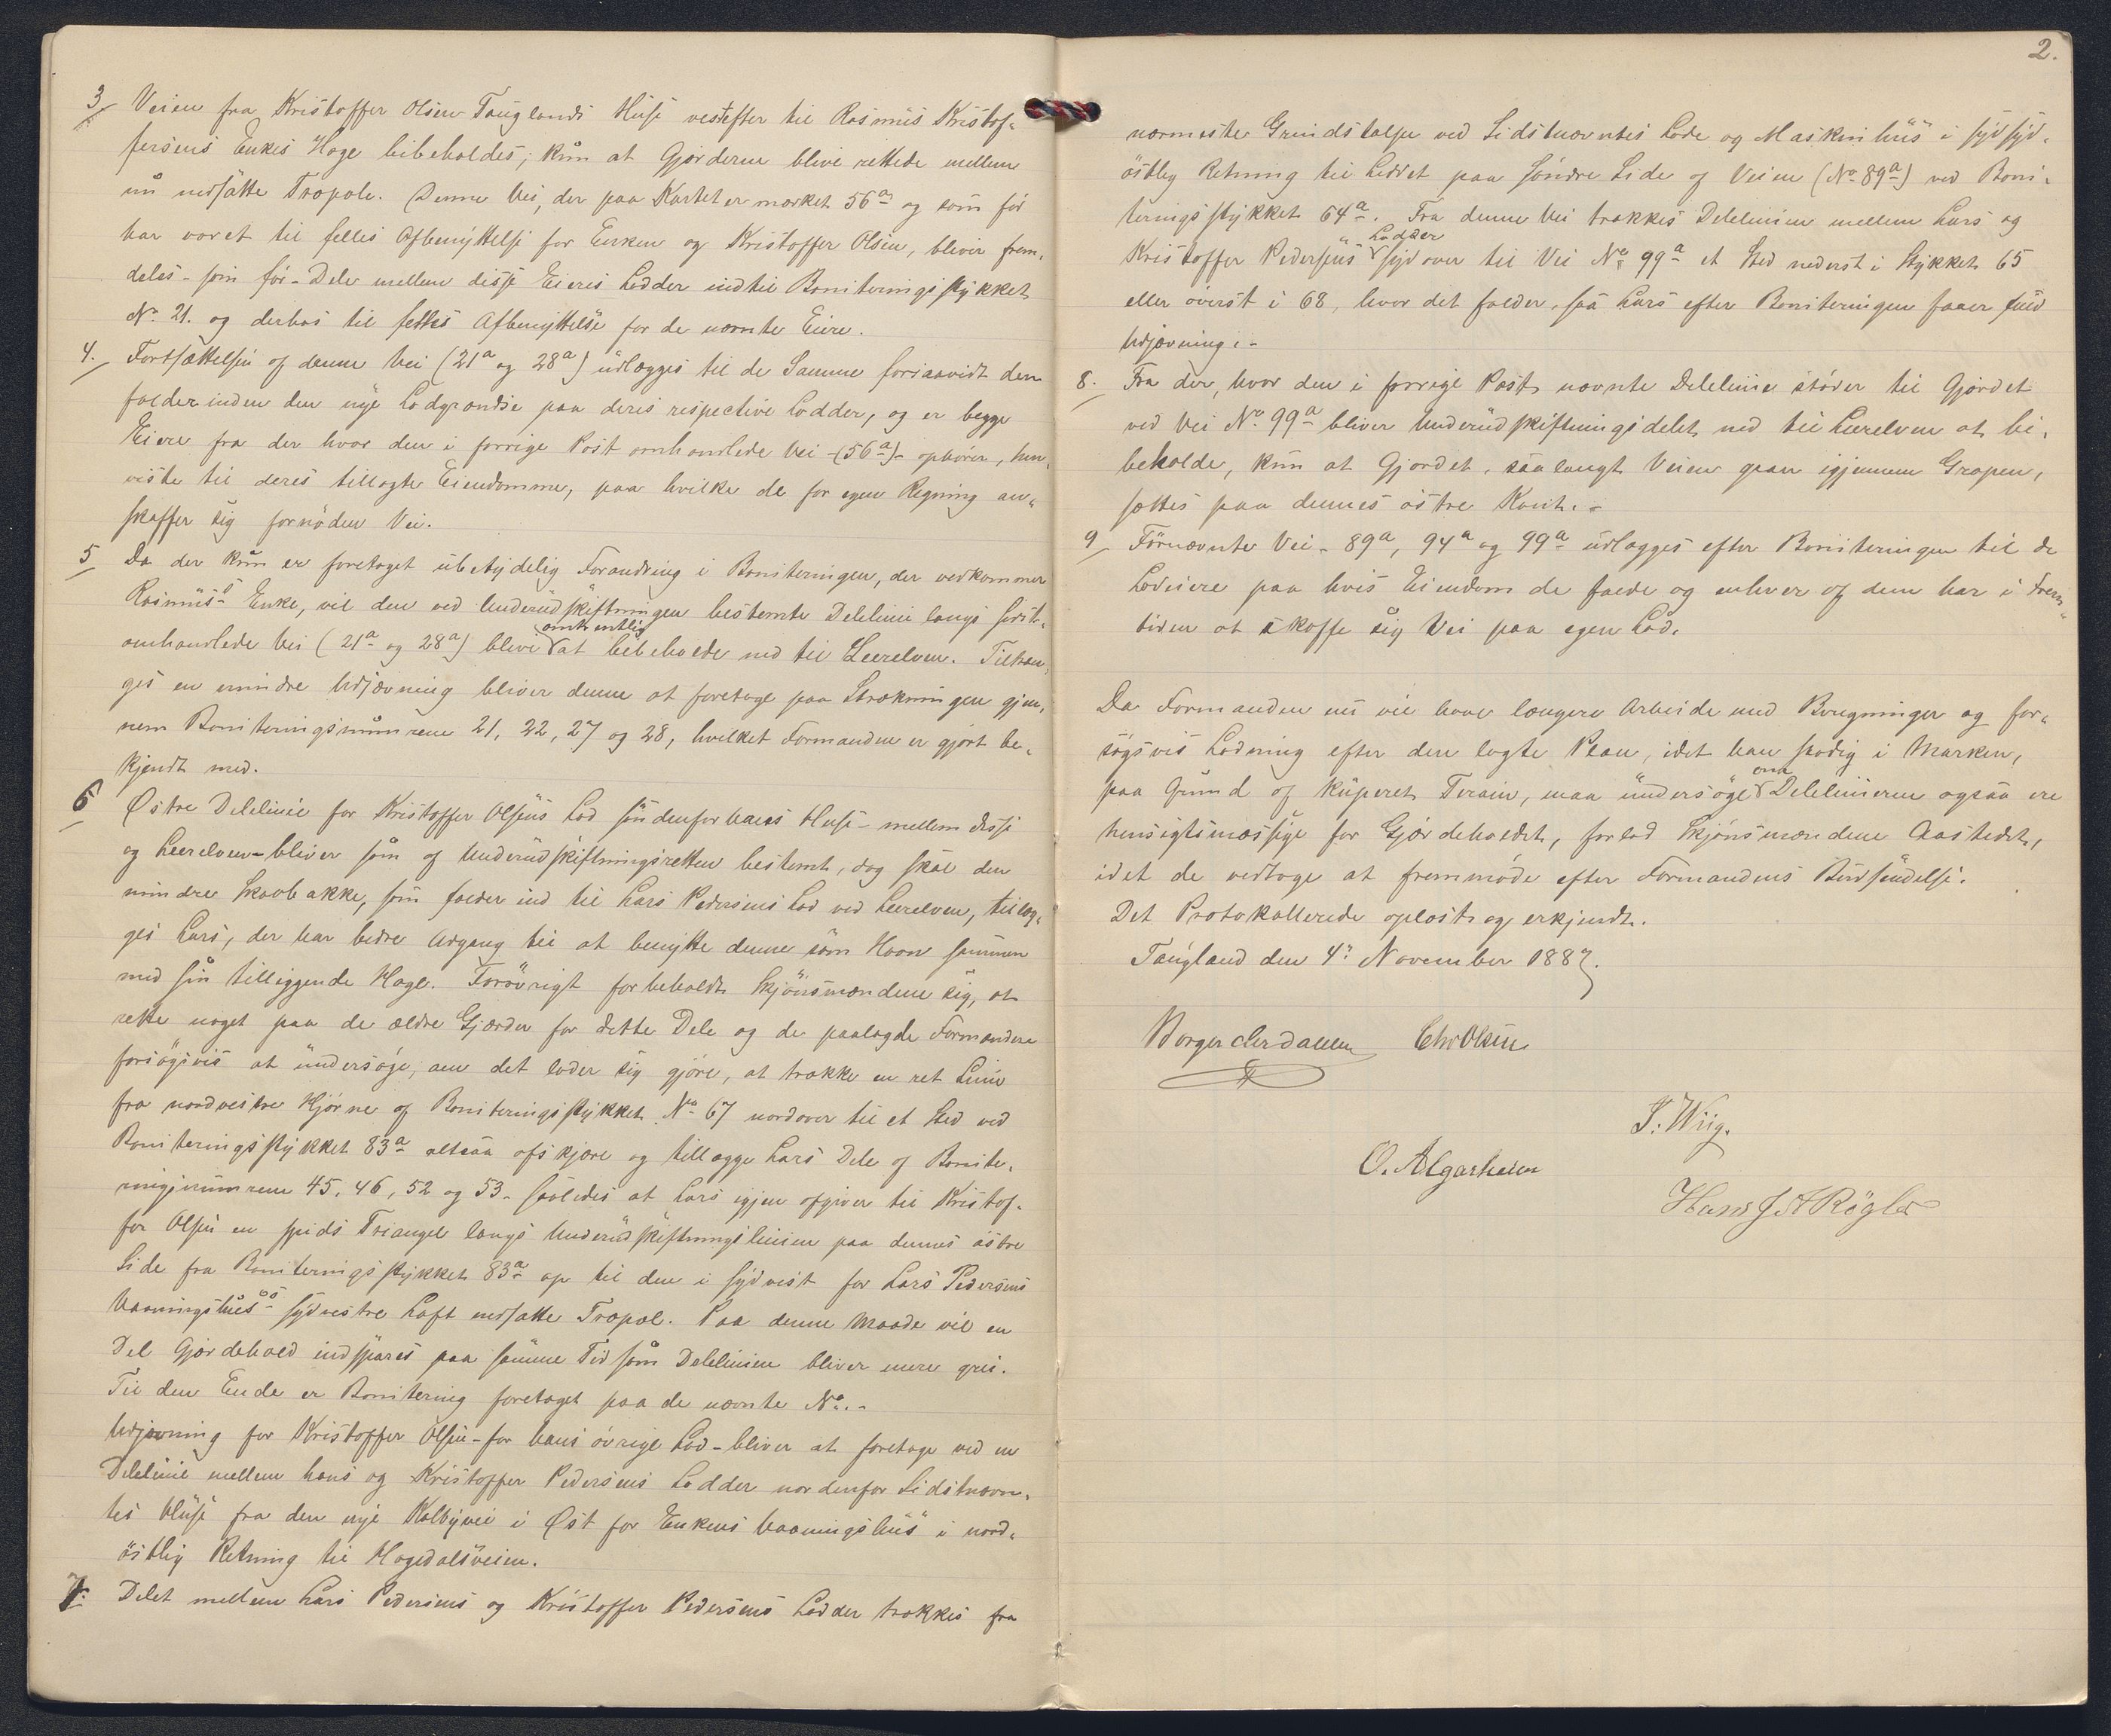 3/ Veien fra Kristoffer Olsen Tauglands Huse vestefter til Rasmus Kristof-
fersens Enkes Hage bibeholdes; kun at Gjærderne blive rettede mellem
nu nedsatte Træpæle. Denne Vei, der paa Kartet er mærket 56a og som før
har været til fælles Afbenyttelse for Enken og Kristoffer Olsen, bliver frem-
deles - som før - Dele mellem disse Eieres Lodder indtil Boniteringsstykket
No. 21. og derhos til fælles Afbenyttelse for de nævnte Eiere.
4./ Fortsættelsen af denne Vei (21a og 28a) udlægges til de Samme forsaavidt den
falder inden den nye Lodgrændse paa deres respective Lodder, og er begge
Eiere fra der hvor den i forrige Post omhandlede Vei - (56a) - ophører, hen-
viste til deres tillagte Eiendomme, paa hvilke de for egen Regning an-
skaffer sig fornøden Vei.
5/ Da der kun er foretaget ubetydelig Forandring i Boniteringen, der vedkommer
Rasmus's Enke, vil den ved Underudskiftningen bestemte Delelinie langs sidst-
omtrentlig
omhandlede Vei (21a og 28a) blive at bibeholde ned til Leerelven. Tiltræn-
ges en mindre Udjævning bliver denne at foretage paa Strækningen gjen-
nem Boniteringsnumrene 21, 22, 27 og 28, hvilket Formanden er gjort be-
kjendt med.
6/ Østre Delelinie for Kristoffer Olsens Lod søndenfor hans Huse - mellem disse
og Leerelven - bliver som af Underudskiftningsretten bestemt, dog skal den
mindre Skovbakke, som falder ind til Lars Pedersens Lod ved Leerelven, tillæg-
ges Lars, der har bedre Adgang til at benytte denne som Havn sammen
med sin tilliggende Hage. Forøvrigt forbeholdt Skjønsmændene sig, at
rette noget paa de ældre Gjærder for dette Dele og de paalagde Formanden
forsøgsvis at undersøge, om det lader sig gjøre, at trække en ret Linie
fra nordvestre Hjørne af Boniteringsstykket No 67 nordover til et Sted ved
Boniteringsstykket 83a altsaa afskjære og tillægge Lars Dele af Bonite-
ringsnumrene 45, 46, 52 og 53 - saaledes at Lars igjen afgiver til Kristof-
fer Olsen en spids Triangel langs Underudskiftningslinien paa dennes østre
Side fra Boniteringsstykket 83a op til den i sydvest for Lars Pedersens
Vaaningshus's sydvestre Laft nedsatte Træpæl. Paa denne Maade vil en
Del Gjærdehold indspares paa samme Tid som Delelinien bliver mere grei.
Til den Ende er Bonitering foretaget paa de nævnte No. -
Udjævning for Kristoffer Olsen - for hans øvrige Lod - bliver at foretage ved en
Delelinie mellem hans og Kristoffer Pedersens Lodder nordenfor Sidstnævn-
tes Huse fra den nye Kalbyvei i Øst for Enkens Vaaningshus i nord-
østlig Retning til Hagedalsveien.
7. Delet mellem Lars Pedersens og Kristoffer Pedersens Lodder trækkes fra
2.
nærmeste Grundstolpe ved Sidstnævntes Lade og Maskinhus i sydsyd-
østlig Retning til Leddet paa søndre Side af Veien (No 89a) ved Boni-
teringsstykket 64a. Fra denne Vei trækkes Delelinien mellem Lars og
Lodder
Kristoffer Pedersens sydover til Vei No 99a et Sted nederst i Stykket 65
eller øverst i 68, hvor det falder, saa Lars efter Boniteringen faaer fuld
Udjævning. -
8./ Fra der, hvor den i forrige Post nævnte Delelinie støder til Gjærdet
ved Vei No. 99a bliver Underudskiftningsdelet ned til Leerelven at bi-
beholde, kun at Gjærdet, saalangt Veien gaar igjennem Grapen,
sættes paa dennes østre Kant. -
9/ Førnævnte Vei - 89a, 94a og 99a udlægges efter Boniteringen til de
Lodeiere paa hvis Eiendom de falde og enhver af dem har i Frem-
tiden at skaffe sig Vei paa egen Lod.
Da Formanden nu vil have længere Arbeide med Beregninger og for-
søgsvis Lodning efter den lagte Plan, idet han stadig i Marken,
om
paa Grund af kuperet Terain, maa undersøge Delelinierne ogsaa ere
hensigtsmæssige for Gjærdeholdet, forlod Skjønsmændene Aastedet,
idet de vedtoge at fremmøde efter Formandens Budsendelse.
Det Protokollerede oplæst og erkjendt.
Taugland den 4: November 1887.
Borger Lerdalen Chr Olsen
T. Wiig.
O. Algarheim
Hans J A Røgler